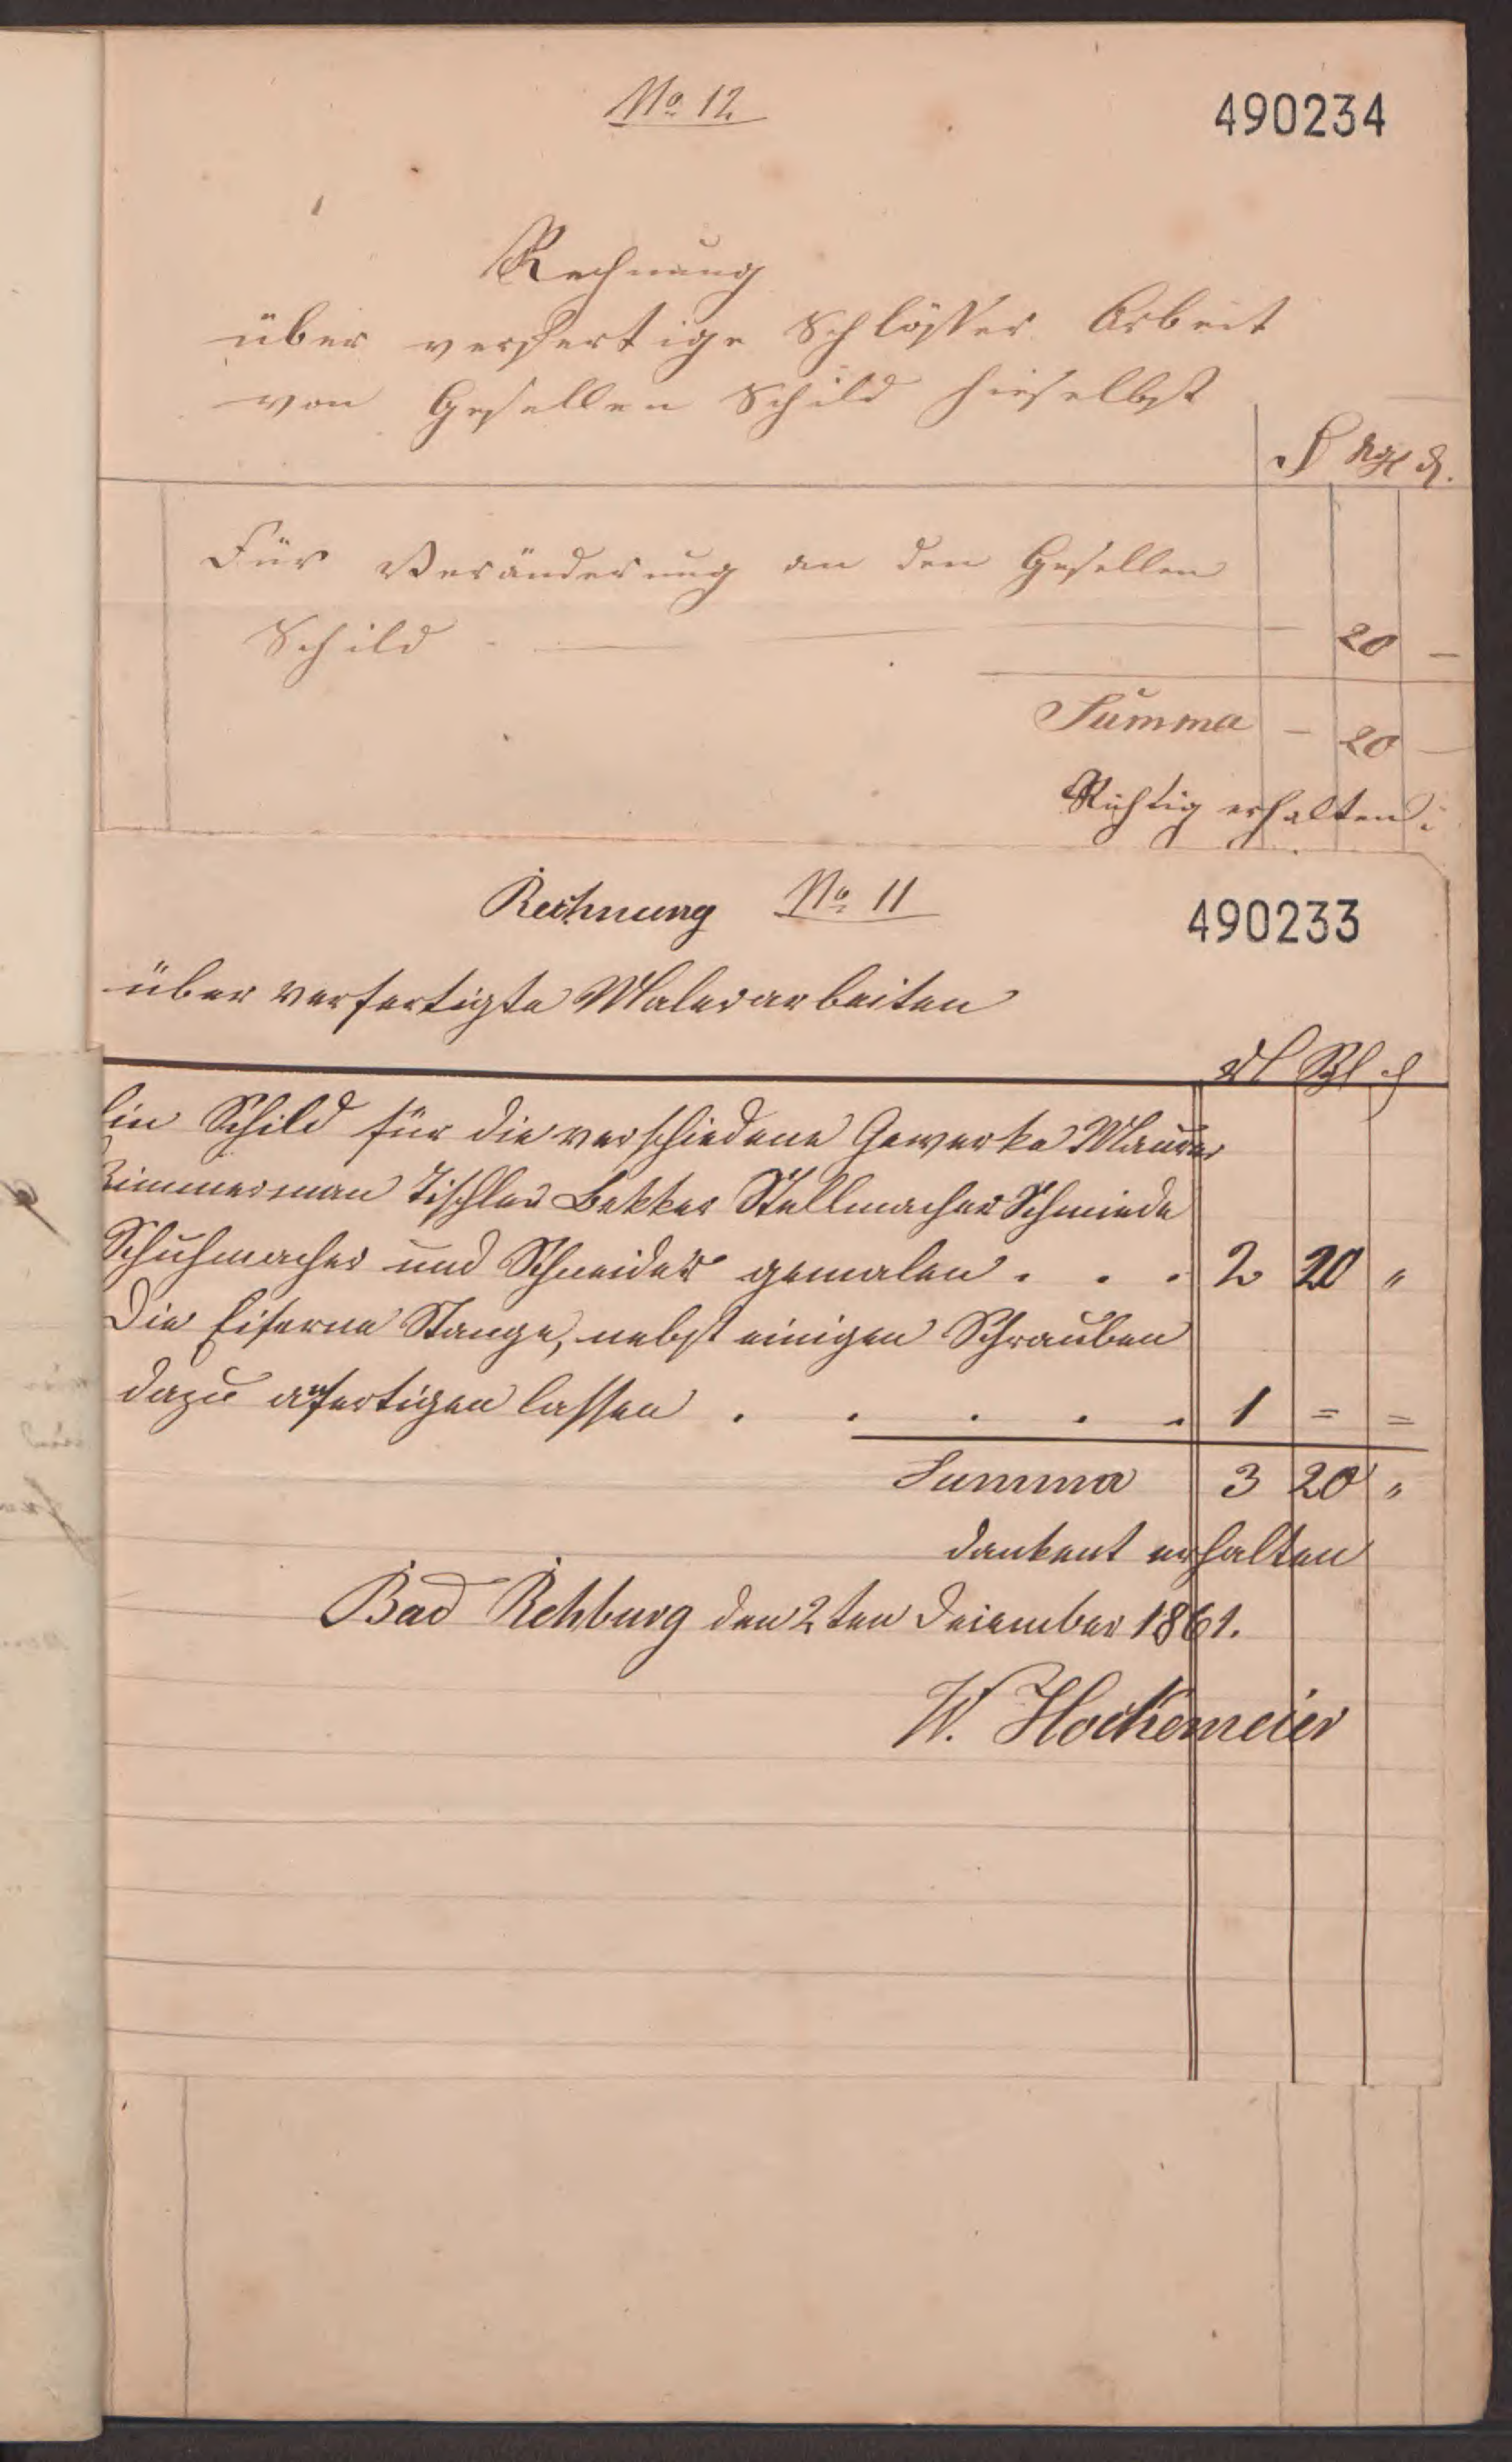 No. 12
490234
Rechnung
über verfertige Schlösser Arbeit
von Gesellen Schild hieselbst
ngr d.
Für Veränderung an den Gesellen
Schild - — — 20 —
Summa — 20 —
Richtig erhalten:
Rechnung No. 11
490233
über verfertigte Malerarbeiten
Ein Schild für die verschiedene Gewerke Maurer
Zimmerman Tischler Bekker Stellmacher Schmiede
Schuhmacher und Schneider gemalen . . . 2 20 "
Die Eiserne Stange, nebst einigen Schrauben
dazu anfertigen lassen . . . . . 1 = =
Summa 3 20 "
dankent erhalten
Bad Rehburg den 2ten Deiember 1861.
W. Hockemeier